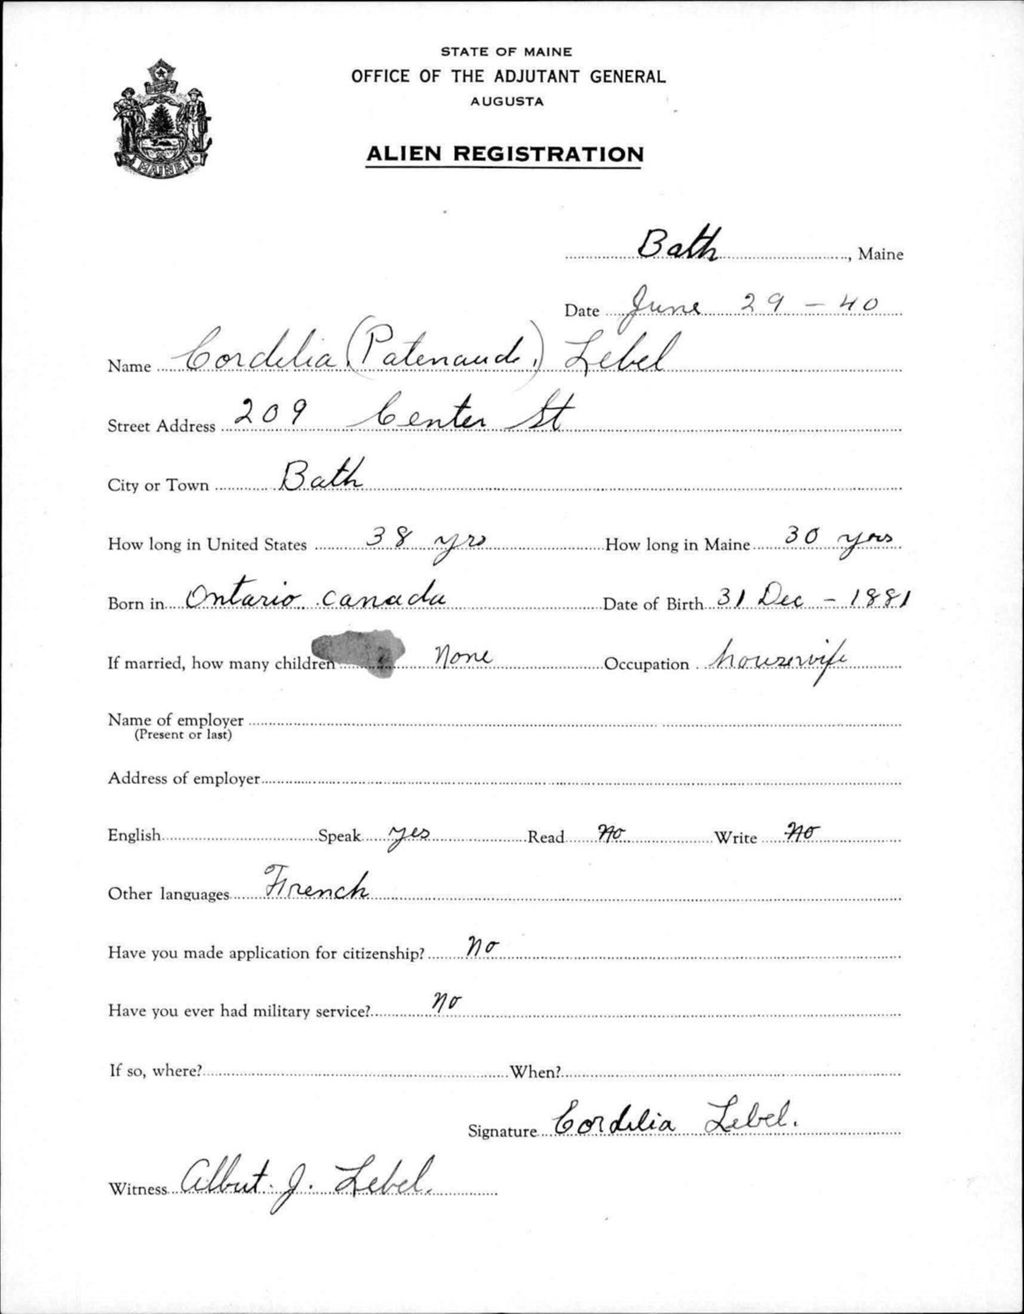 STATE OF MAINE
OFFICE OF THE ADJUTANT GENERAL
AUGUSTA
ALIEN REGISTRATION
MAINE
Bath, Maine
Date June 29 - 40
Name Cordelia (Patenaude.) Lebel
Street Address 209 Center St
City or Town Bath
How long in United States 38 yrs How long in Maine 30 yrs
Born in Ontario Canada Date of Birth 31 Dec - 1881
If married, how many children None Occupation housewife
Name of employer
(Present or last)
Address of employer
English Speak yes Read No Write No
Other languages French
Have you made application for citizenship? No
Have you ever had military service? No
If so, where? When?
Signature Cordelia Lebel.
Witness Albert. J. Lebel.